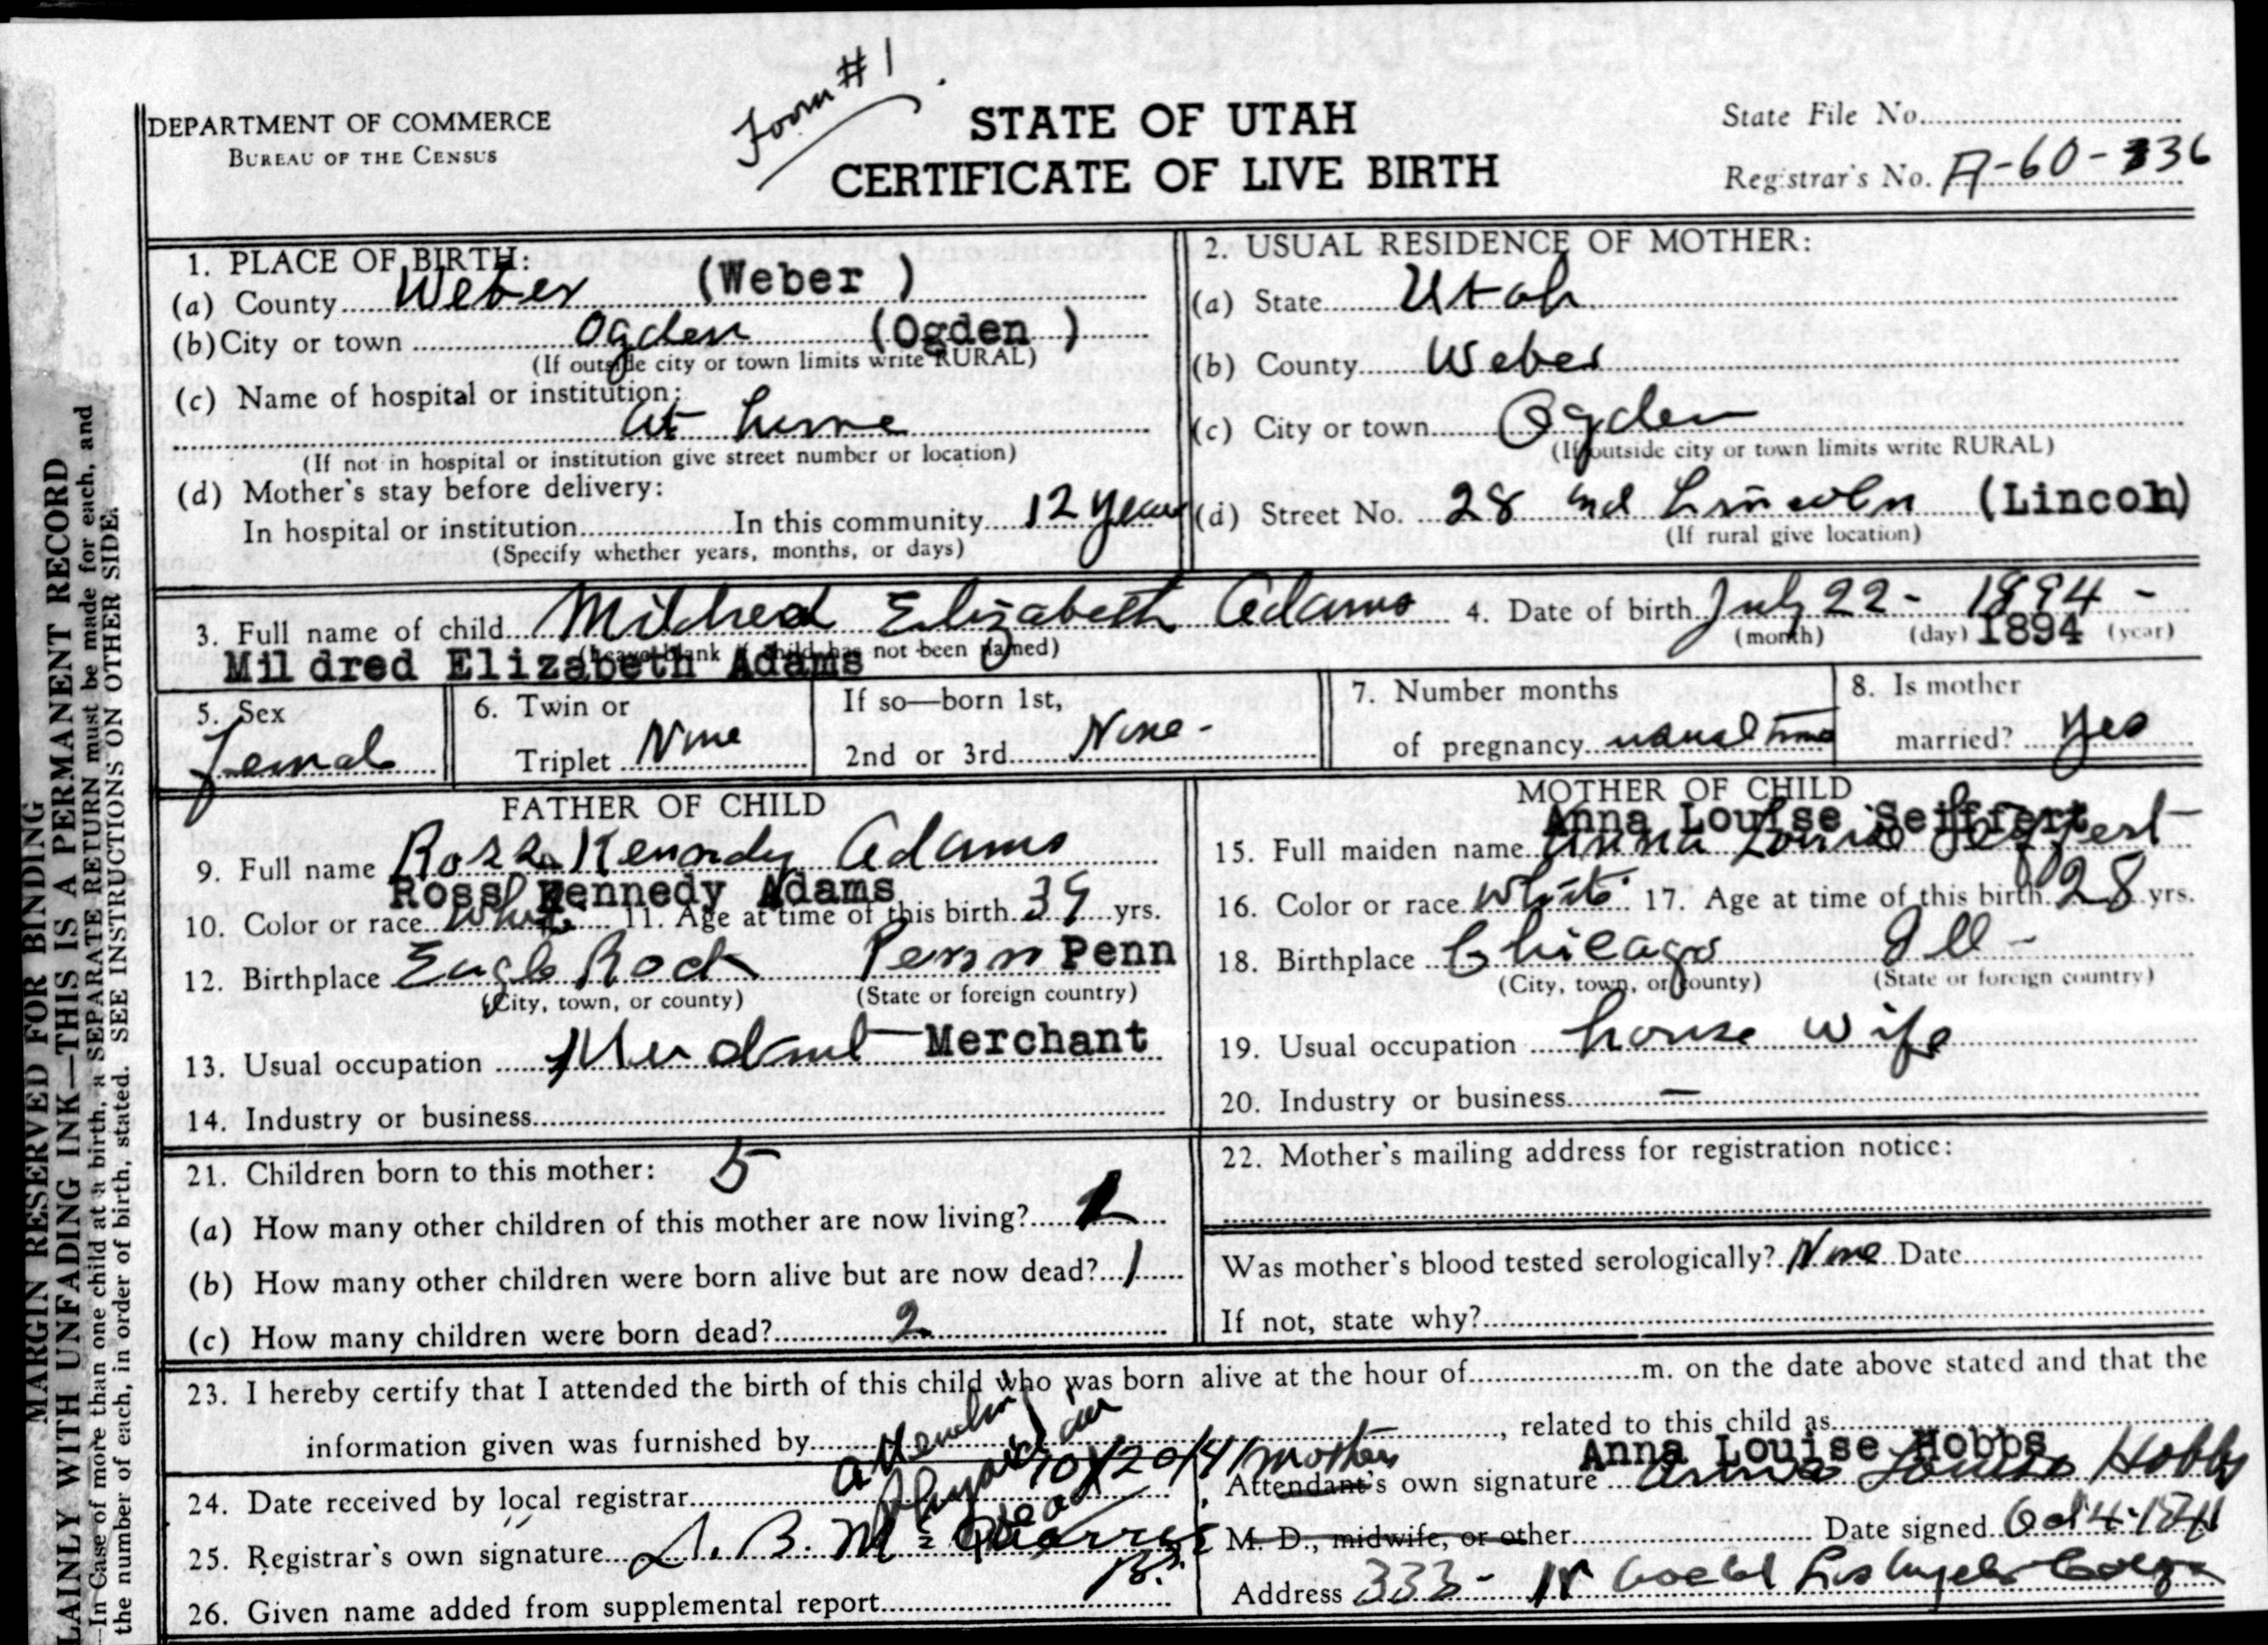 Form #1
DEPARTMENT OF COMMERCE
BUREAU OF THE CENSUS
STATE OF UTAH
CERTIFICATE OF LIVE BIRTH
State File No.
Registrar's No. A-60-336
MARGIN RESERVED FOR BINDING
LAINLY WITH UNFADING INK—THIS IS A PERMANENT RECORD
—In Case of more than one child at a birth, a SEPARATE RETURN must be made for each, and
the number of each, in order of birth, stated. SEE INSTRUCTIONS ON OTHER SIDE.
1. PLACE OF BIRTH:
(a) County Weber (Weber )
(b) City or town Ogden (Ogden )
(If outside city or town limits write RURAL)
(c) Name of hospital or institution:
At home
(If not in hospital or institution give street number or location)
(d) Mother's stay before delivery:
In hospital or institution In this community 12 years
(Specify whether years, months, or days)
2. USUAL RESIDENCE OF MOTHER:
(a) State Utah
(b) County Weber
(c) City or town Ogden
(If outside city or town limits write RURAL)
(d) Street No. 28 and Lincoln (Lincoln)
(If rural give location)
3. Full name of child Mildred Elizabeth Adams 4. Date of birth July 22 - 1894 -
(Leave blank if child has not been named) (month) (day) 1894 (year)
Mildred Elizabeth Adams
5. Sex Female
6. Twin or Triplet None
If so—born 1st, 2nd or 3rd None -
7. Number months of pregnancy usual time
8. Is mother married? Yes
FATHER OF CHILD
9. Full name Ross Kennedy Adams
Ross Kennedy Adams
10. Color or race White 11. Age at time of this birth 39 yrs.
12. Birthplace Eagle Rock Penn Penn
(City, town, or county) (State or foreign country)
13. Usual occupation Merchant Merchant
14. Industry or business
MOTHER OF CHILD
Anna Louise Seiffert
15. Full maiden name Anna Louise Seiffert
16. Color or race White 17. Age at time of this birth 28 yrs.
18. Birthplace Chicago Ill -
(City, town, or county) (State or foreign country)
19. Usual occupation house wife
20. Industry or business —
21. Children born to this mother: 5
(a) How many other children of this mother are now living?
(b) How many other children were born alive but are now dead? 1
(c) How many children were born dead? 2
22. Mother's mailing address for registration notice:
Was mother's blood tested serologically? None Date
If not, state why?
23. I hereby certify that I attended the birth of this child who was born alive at the hour of m. on the date above stated and that the
information given was furnished by , related to this child as
attending physician dead
24. Date received by local registrar 10/20/41
25. Registrar's own signature
26. Given name added from supplemental report
Anna Louise Hobbs
mother
Attendant's own signature Anna Louise Hobbs
M. D., midwife, or other Date signed Oct 4-1941
Address 333- Los Angeles